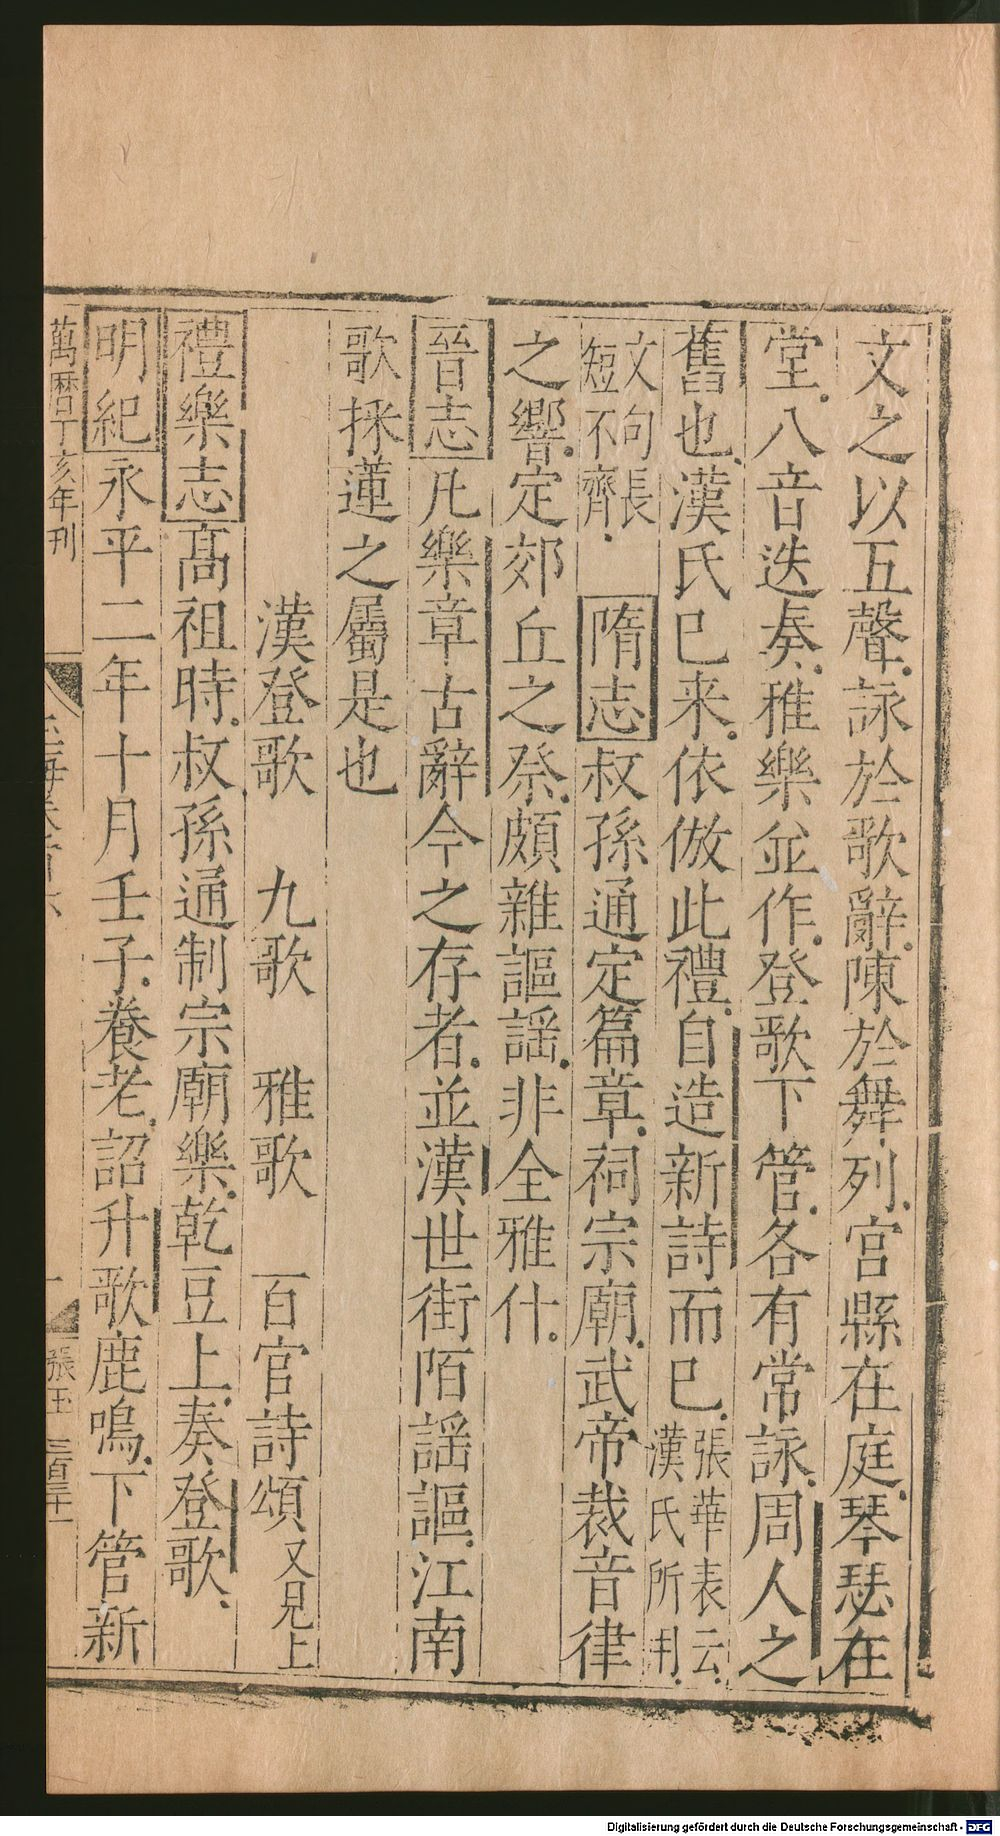 文之以五聲詠於歌辭陳於舞列宫縣在庭琴瑟在
堂八音迭奏雅樂並作登歌下管各有常詠周人之
舊也漢氏已来依倣此禮自造新詩而已張華表云漢氏所用
文句長短不齊 隋志叔孫通定篇章祠宗廟武帝裁音律
之響定郊丘之祭頗雜謳謡非全雅什
晉志凡樂章古辭今之存者並漢世街陌謡謳江南
歌採蓮之屬是也
漢登歌 九歌 雅歌 百官詩頌又見上
禮樂志髙祖時叔孫通制宗廟樂乾豆上奏登歌
明紀永平二年十月壬子養老詔升歌鹿鳴下管新
萬曆丁亥年刊
張玉 三百三十一
Digitalisierung gefördert durch die Deutsche Forschungsgemeinschaft - DFG